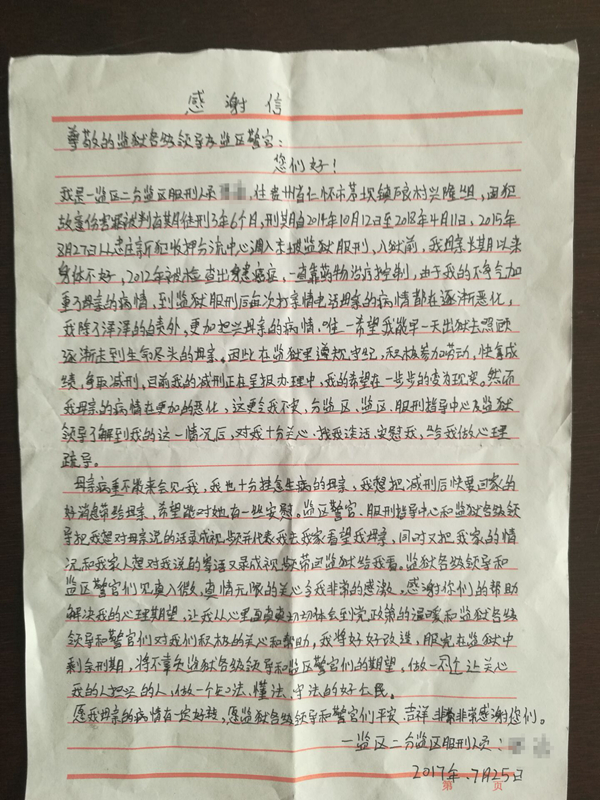 感谢信
尊敬的监狱各级领导及监区警官:
您们好!
我是一监区二分监区服刑人员 住贵州省仁怀市茅坝镇 村兴隆组,因犯
故意伤害罪被判有期徒刑3年6个月,刑期自2014年10月12日至2018年4月11日,2015年
3月27日从忠庄新犯收押分流中心调入 监狱服刑,入狱前,我母亲长期以来
身体不好,2012年被检查出身患癌症,一直靠药物治疗控制,由于我的不争气加
重了母亲的病情,到监狱服刑后每次打亲情电话母亲的病情都在逐渐恶化,
我除了深深的自责外,更加担心母亲的病情,唯一希望我能早一天出狱去照顾
逐渐走到生命尽头的母亲。因此在监狱里遵规守纪,积极参加劳动,快拿成
绩,争取减刑,目前我的减刑正在呈报办理中,我的希望在一步步的变为现实。然而
我母亲的病情在更加的恶化,这更令我不安,分监区、监区、服刑指导中心及监狱
领导了解到我的这一情况后,对我十分关心,找我谈话、安慰我,给我做心理
疏导。
母亲病重不能来会见我,我也十分挂念生病的母亲,我想把减刑后快要回家的
好消息带给母亲,希望能对她有一些安慰。监区警官、服刑指导中心和监狱各级领
导把我想对母亲说的话录成视频并代表我去我家看望我母亲,同时又把我家的情
况和我家人想对我说的 话又录成视频带回监狱给我看。监狱各级领导和
监区警官们 真情无限的关心令我非常的感激。感谢你们的帮助
解决我的心理期望,让我从心里面真真切切体会到党政策的温暖和监狱各级
领导和警官们对我们积极的关心和帮助,我将好好改造,服完在监狱中
剩余刑期,将不辜负监狱各级领导和监区警官们的期望,做一个让关心
我的人 的人,做一个 法、懂法、守法的好公民。
愿我母亲的病情有一定好转,愿监狱各级领导和警官们平安、吉祥 非常非常感谢您们。
一监区二分监区服刑人员:
2017年.7月25日
第 页